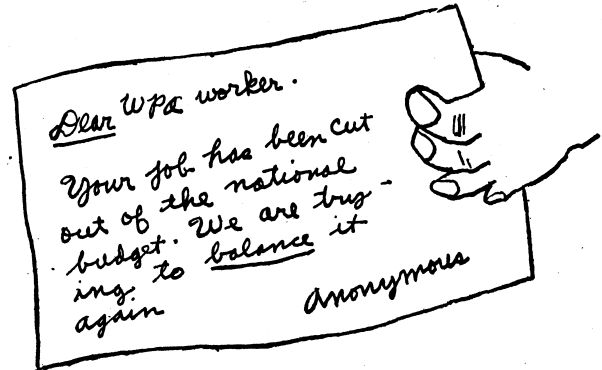 Dear WPA worker.
Your job has been cut
out of the national
budget. We are try-
ing to balance it
again
Anonymous